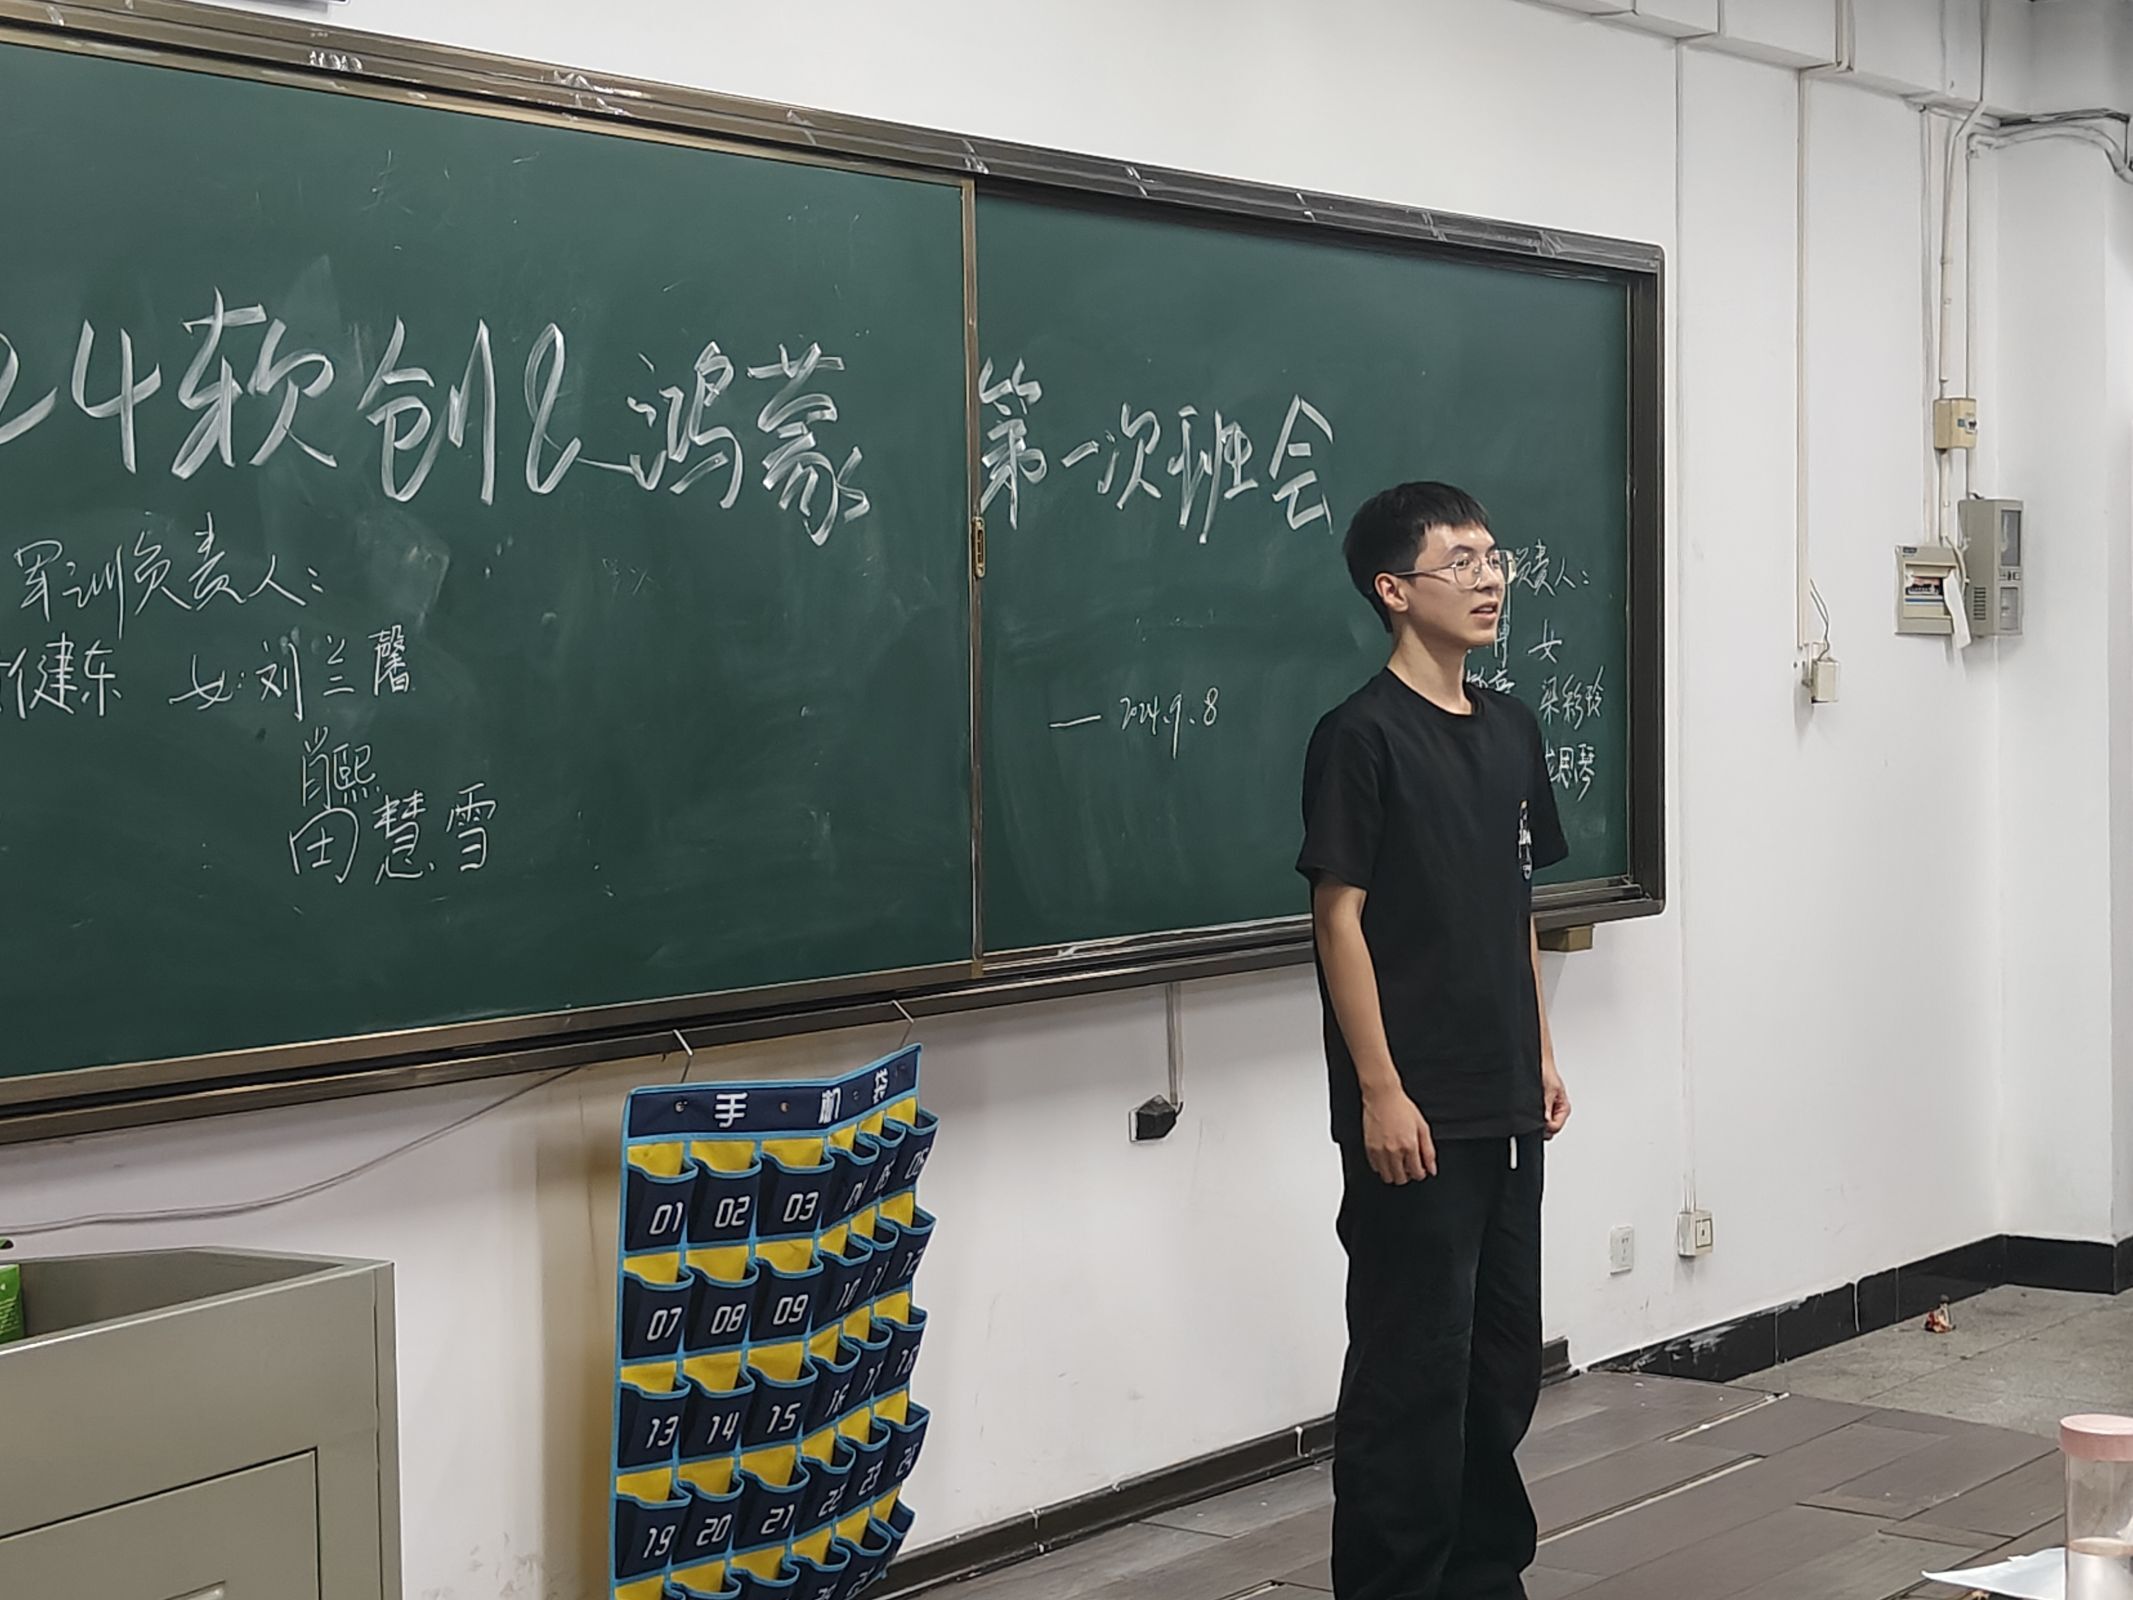 24软创&鸿蒙 第一次班会
军训负责人:
健东 女:刘兰馨
肖熙
田慧雪
— 2024.9.8
负责人:
女
梁彩玲
思琴
手机袋
01 02 03 04 05 06
07 08 09 10 11 12
13 14 15 16 17 18
19 20 21 22 23 24